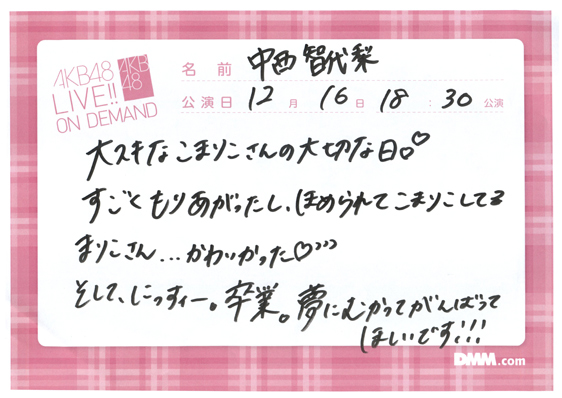 AKB48
LIVE!!
ON DEMAND
AKB
48
名前 中西智代梨
公演日 12月 16日 18:30 公演
大スキなこまりこさんの大切な日。♡
すごくもりあがったし、ほめられてこまりこしてる
まりこさん...かわいかった♡
そして、にっすぃー。卒業。夢にむかってがんばって
ほしいです!!!
DMM.com